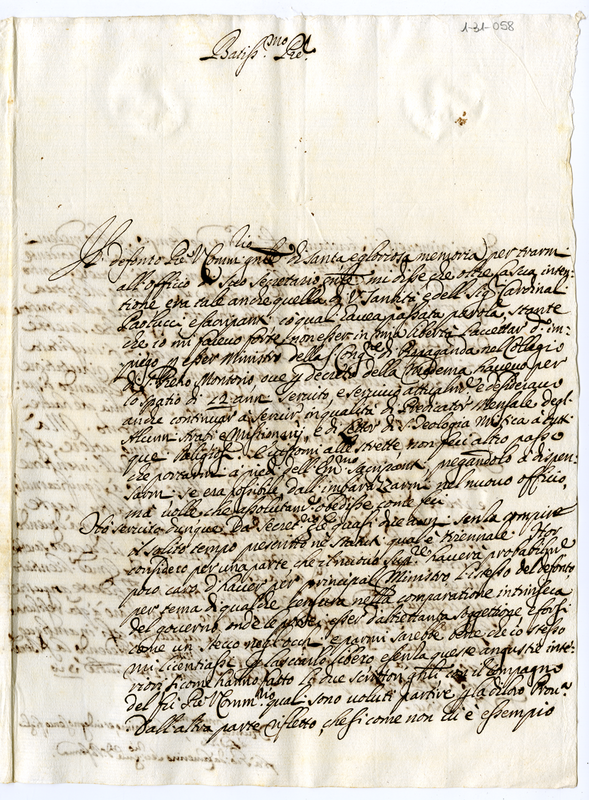 1-31-058
Batiss.mo Pre
Il defonto Pre V. Comm. gnle di santa, e gloriosa memoria per trarmi
all'officio di suo segretario gnle mi disse che oltre la sua inten-
tione era tale anche quella di V. Santità, e dell Sig. Cardinal
Paolucci, e Sacripante, co quali havea passata parola, stante
che io mi facevo forte non esser in mia libertà l'accettar d. im-
piego p esser Ministro della S. Congne di Propaganda nel Collegio
di S. Pietro Montorio ove p decreto della medema havevo per
lo spatio di 12 anni servito, e servivo attualmte e desideravo
anche continuar a servir in qualità di Predicator Mensale degl
Alunni strati e Missionarij, e di Lettor di S. Teologia Mistica à qual
que Religioso. E cosi alle strette non feci altro passo
che portarmi a piedi dell Em.mo Sacripante pregandolo a dispen-
sarmi se era possibile dall'imbarazzarmi nel nuovo officio,
mà volle che assolutamte obedisse come feci
Hò servito dunque da Secretrio quasi due anni senza compire
il solito tempo prescritto ne statuti qual è triennale. Hor
considero per una parte che il nuovo haverà probabilmte
poco caro d'haver per principal Ministro l'istesso del defonto
per tema di qualche censura nella comparatione intrinseca
del governo, onde le potrei esser d'altrettanta soggettione, e forsi
come un stecco negl'occhi, e parmi sarebbe bene che io stesso
mi licentiassi p lasciarlo libero e senza queste angustie inte-
riori si come hanno fatto li due scrittori gnli col il compagno
del fù Pre Comm.rio quali sono voluti partire p la di loro Prona
Dall'altra parte rifletto, che si come non vi è essempio